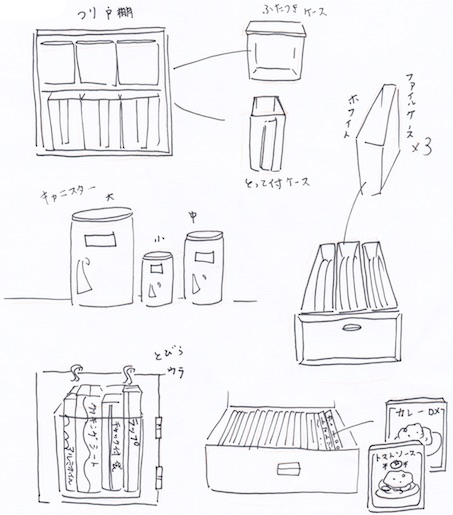 つり戸棚
ふたつきケース
とって付ケース
ファイルケース
ホワイト
×3
キャニスター
大
小
中
とびら
ウラ
アルミホイル
クッキングシート
チャック付袋
ラップ
カレーDX
トマトソース